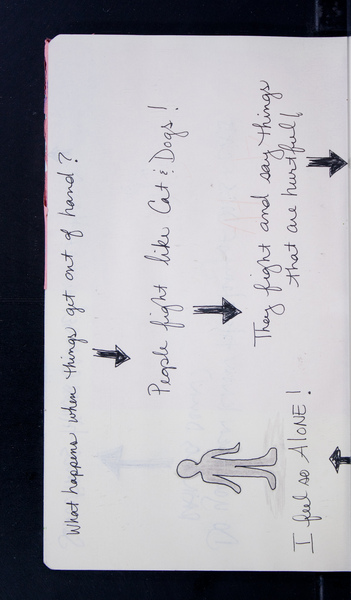 What happens when things get out of hand?
People fight like Cat & Dogs!
They fight and say things
that are hurtful!
I feel so ALONE!